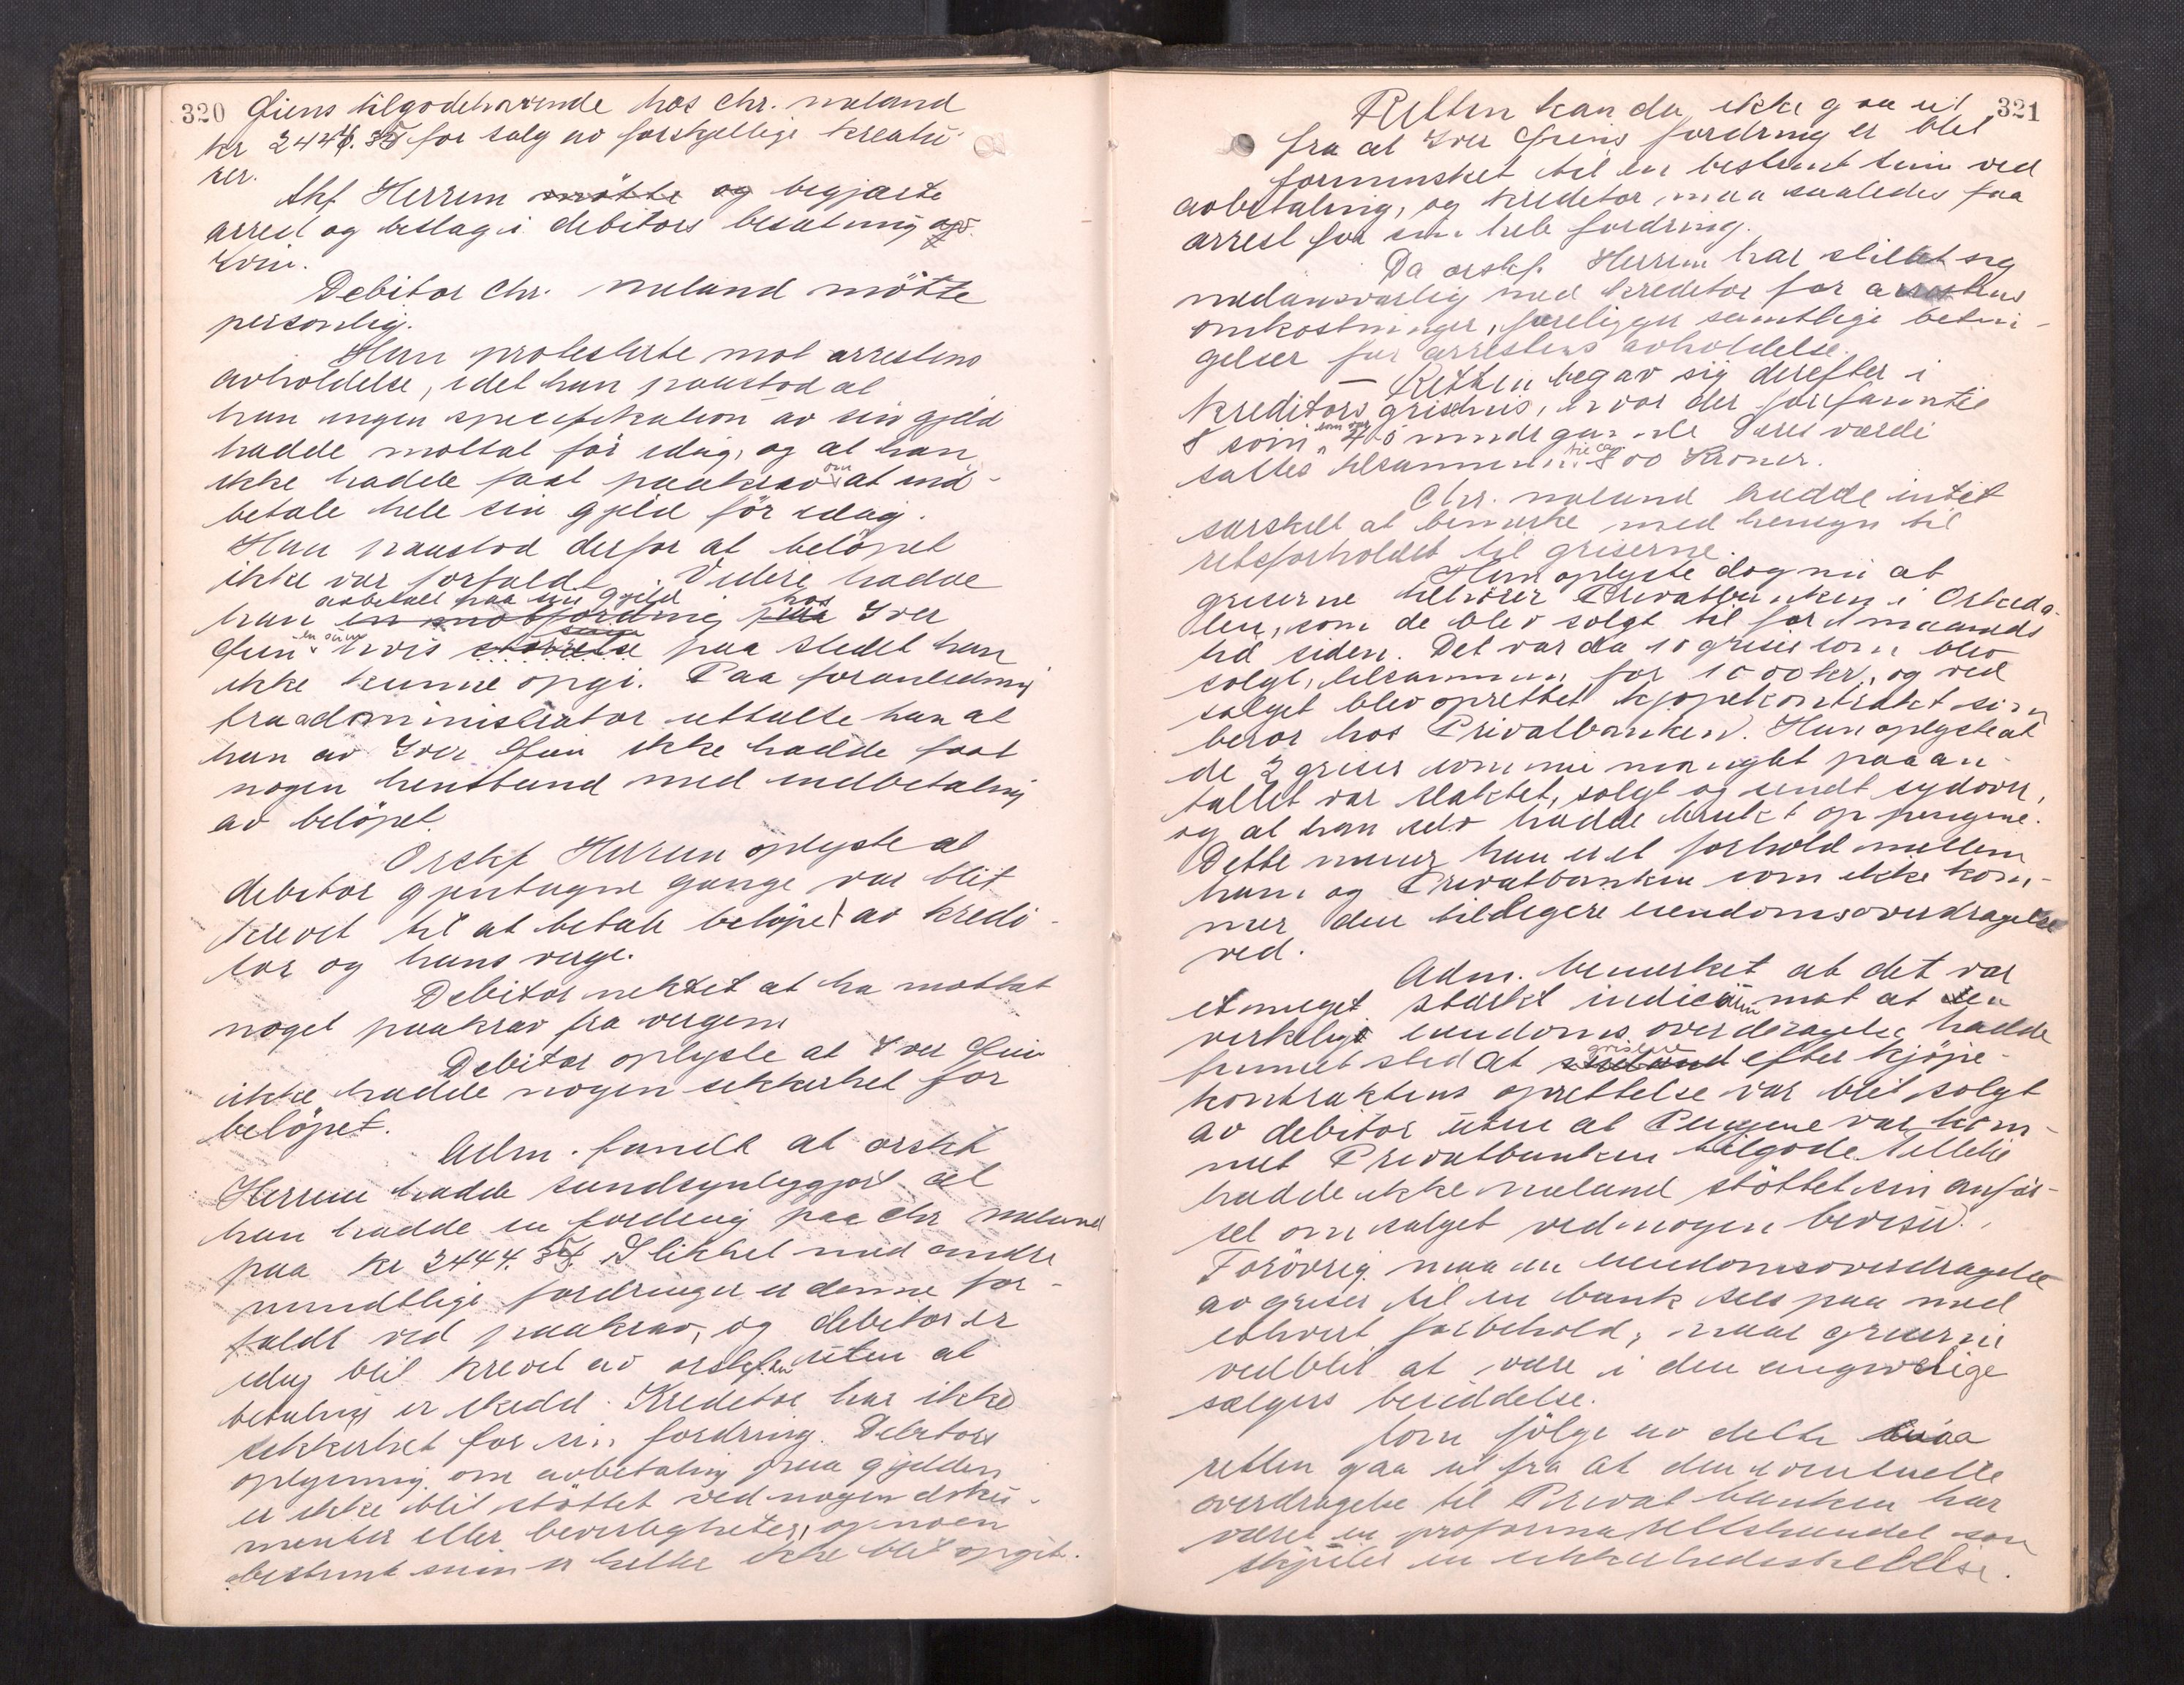 320 Giens tilgodehavende hos Chr. Moland
kr 2444.35 for salg av forskjellige kreatu-
rer.
Skf Herrem møtte og begjærte
arrest og beslag i debitors besætning av
svin.
Debitor Chr. Moland mötte
personlig.
Han protesterte mot arrestens
avholdelse, idet han paastod at
han ingen specifikation av sin gjeld
hadde mottat för idag, og at han
ikke hadde faat paakrav om at ind-
betale hele sin gjeld för idag.
Han paastod derfor at belöpet
ikke var forfaldt. Videre hadde
avbetalt paa sin gjeld hos
han en motfordring paa Iver
Gien en sum hvis störrelse paa stedet han
ikke kunne opgi. Paa foranledning
fra administrator uttalte han at
han av Iver Gien ikke hadde faat
nogen henstand med indbetaling
av belöpet.
Orskf Herrem oplyste at
debitor gjentagne gange var blit
krevet til at betale belöpet av kredi-
tor og hans verge.
Debitor nektet at ha mottat
noget paakrav fra vergen.
Debitor oplyste at Iver Gien
ikke hadde nogen sikkerhet for
belöpet.
Adm. fandt at orskf
Herrem hadde sandsynliggjort at
han hadde en fordring paa Chr Moland
paa kr 2444.35. I likhet med andre
mundtlige fordringer er denne for-
faldt ved paakrav, og debitor er
idag blit krevet av orskf.en uten at
betaling er skedd. Kreditor har ikke
sikkerhet for sin fordring. Debitors
oplysning om avbetaling paa gjelden
er ikke blit stöttet ved nogen doku-
menter eller bevisligheter, og noen
bestemt sum er heller ikke blit opgit.
321
Retten kan da ikke gaa ut
fra at Iver Giens fordring er blit
forminsket til en bestemt sum ved
avbetaling, og kreditor maa saaledes faa
arrest for sin hele fordring.
Da orskf. Herrem har stillet sig
medansvarlig med kreditor for arrestens
omkostninger, foreligger samtlige betin-
gelser for arrestens avholdelse.
— Retten begav sig derefter i
kreditors grisehus, hvor der forefantes
8 svin, som var 4-5 mndr gamle. Deres værdi
sattes tilsammen til ca 800 Kroner.
Chr. Moland hadde intet
særskilt at bemerke med hensyn til
retsforholdet til griserne.
Han oplyste dog nu at
griserne tilhører Privatbanken i Orkeda-
len, som de blev solgt til for 1 maaneds
tid siden. Det var da 10 griser som blev
solgt, tilsammen for 1000 kr., og ved
salget blev oprettet kjöpekontrakt som
beror hos Privatbanken. Han oplyste at
de 2 griser som nu manglet paa an-
tallet var slaktet, solgt og sendt sydover,
og at han selv hadde brukt op pengene.
Dette mener han er et forhold mellem
ham og Privatbanken som ikke kom-
mer den tidligere eiendomsoverdragelse
ved.
Adm. bemerket at det var
et meget sterkt indicium mot at en
virkelig eiendomsoverdragelse hadde
funnet sted at griserne efter kjöpe-
kontraktens oprettelse var blit solgt
av debitor uten at Pengene var kom-
met Privatbanken tilgode. Tillike
hadde ikke Moland stöttet sin anför-
sel om salget ved nogen beviser.
Forövrig maa en eiendomsoverdragelse
av griser til en bank sees paa med
ethvert forbehold, naar griserne
vedblir at være i den angivelige
sælgers besiddelse.
Som fölge av dette maa
retten gaa ut fra at den eventuelle
overdragelse til Privatbanken har
været en proforma retshandel som
skjuler en sikkerhedsstillelse.